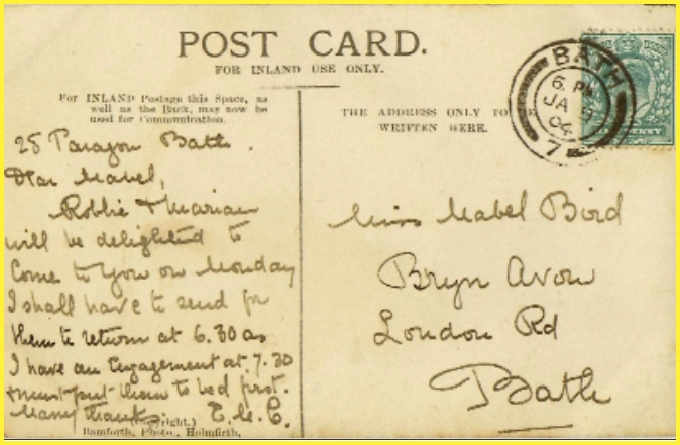 POST CARD.
FOR INLAND USE ONLY.
For INLAND Postage this Space, as
well as the Back, may now be
used for Communication.
THE ADDRESS ONLY TO BE
WRITTEN HERE.
BATH
6. PM
JA 9
04
7
HALFPENNY
25 Paragon Bath.
Dear Mabel,
Robbie & Marian
will be delighted to
Come to you on Monday
I shall have to send for
them to return at 6.30 as
I have an Engagement at 7.30
& must put them to bed first.
Many thanks. E.M.C.
(Copyright.)
Bamforth, Photo., Holmfirth.
Miss Mabel Bird
Bryn Avon
London Rd
Bath